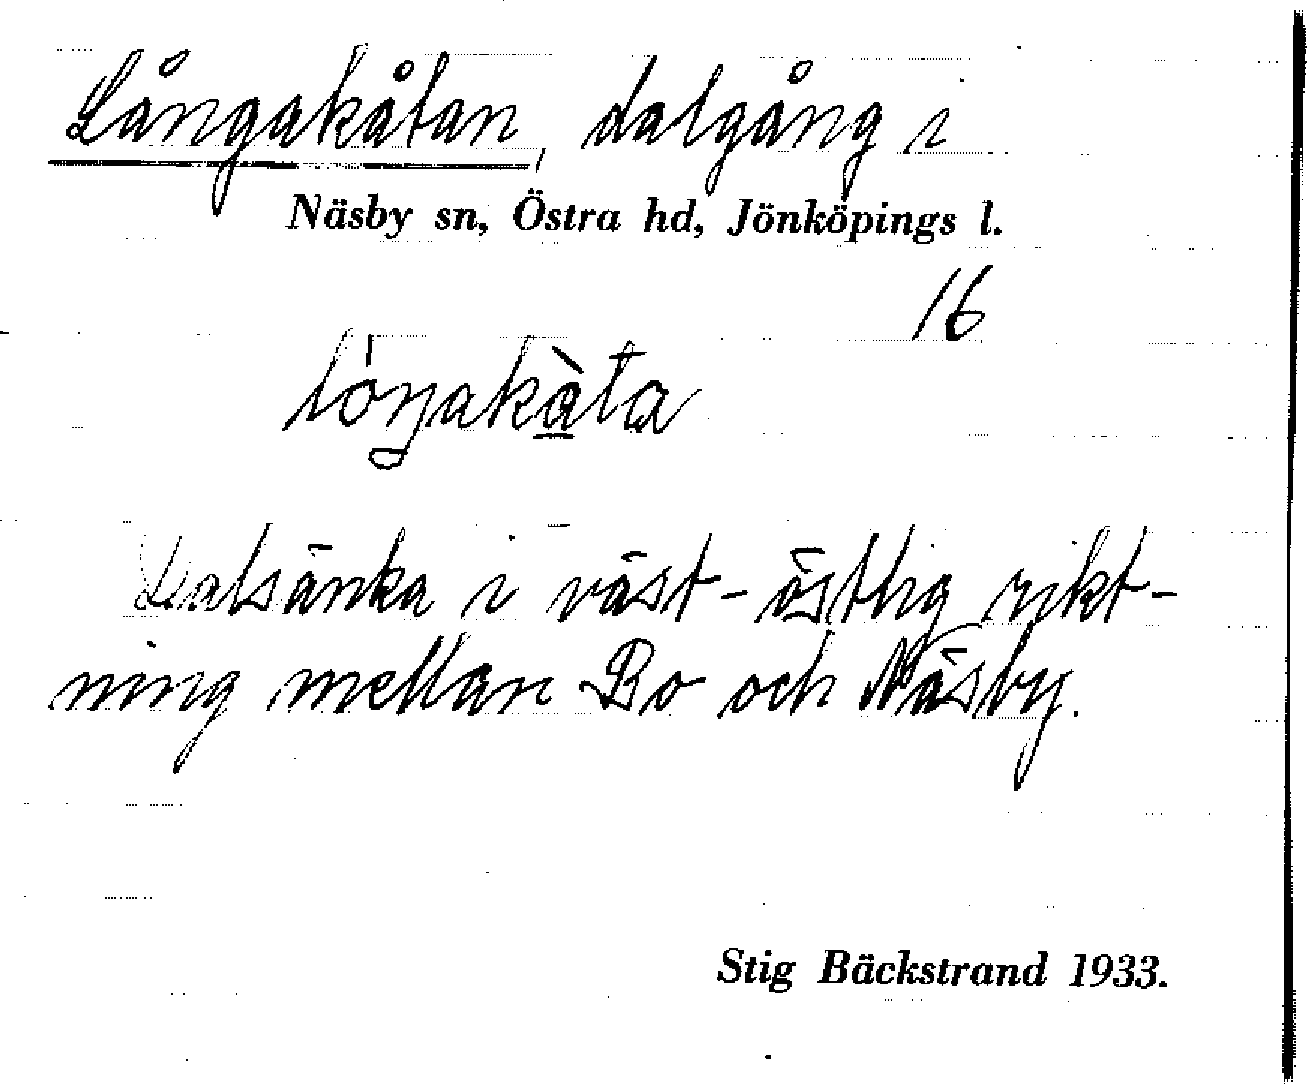 Långakåtan, dalgång i
Näsby sn, Östra hd, Jönköpings l.
16
lóŋakàta
Dalsänka i väst-östlig rikt-
ning mellan Bo och Näsby.
Stig Bäckstrand 1933.